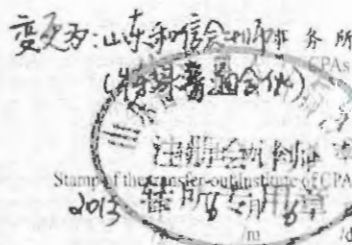 变更为:山东和信会计师事务所
CPAs
(特殊普通合伙)
注册会计师
Stamp of the transfer-out Institute of CPA
转所专用章
2013
/y /m /d